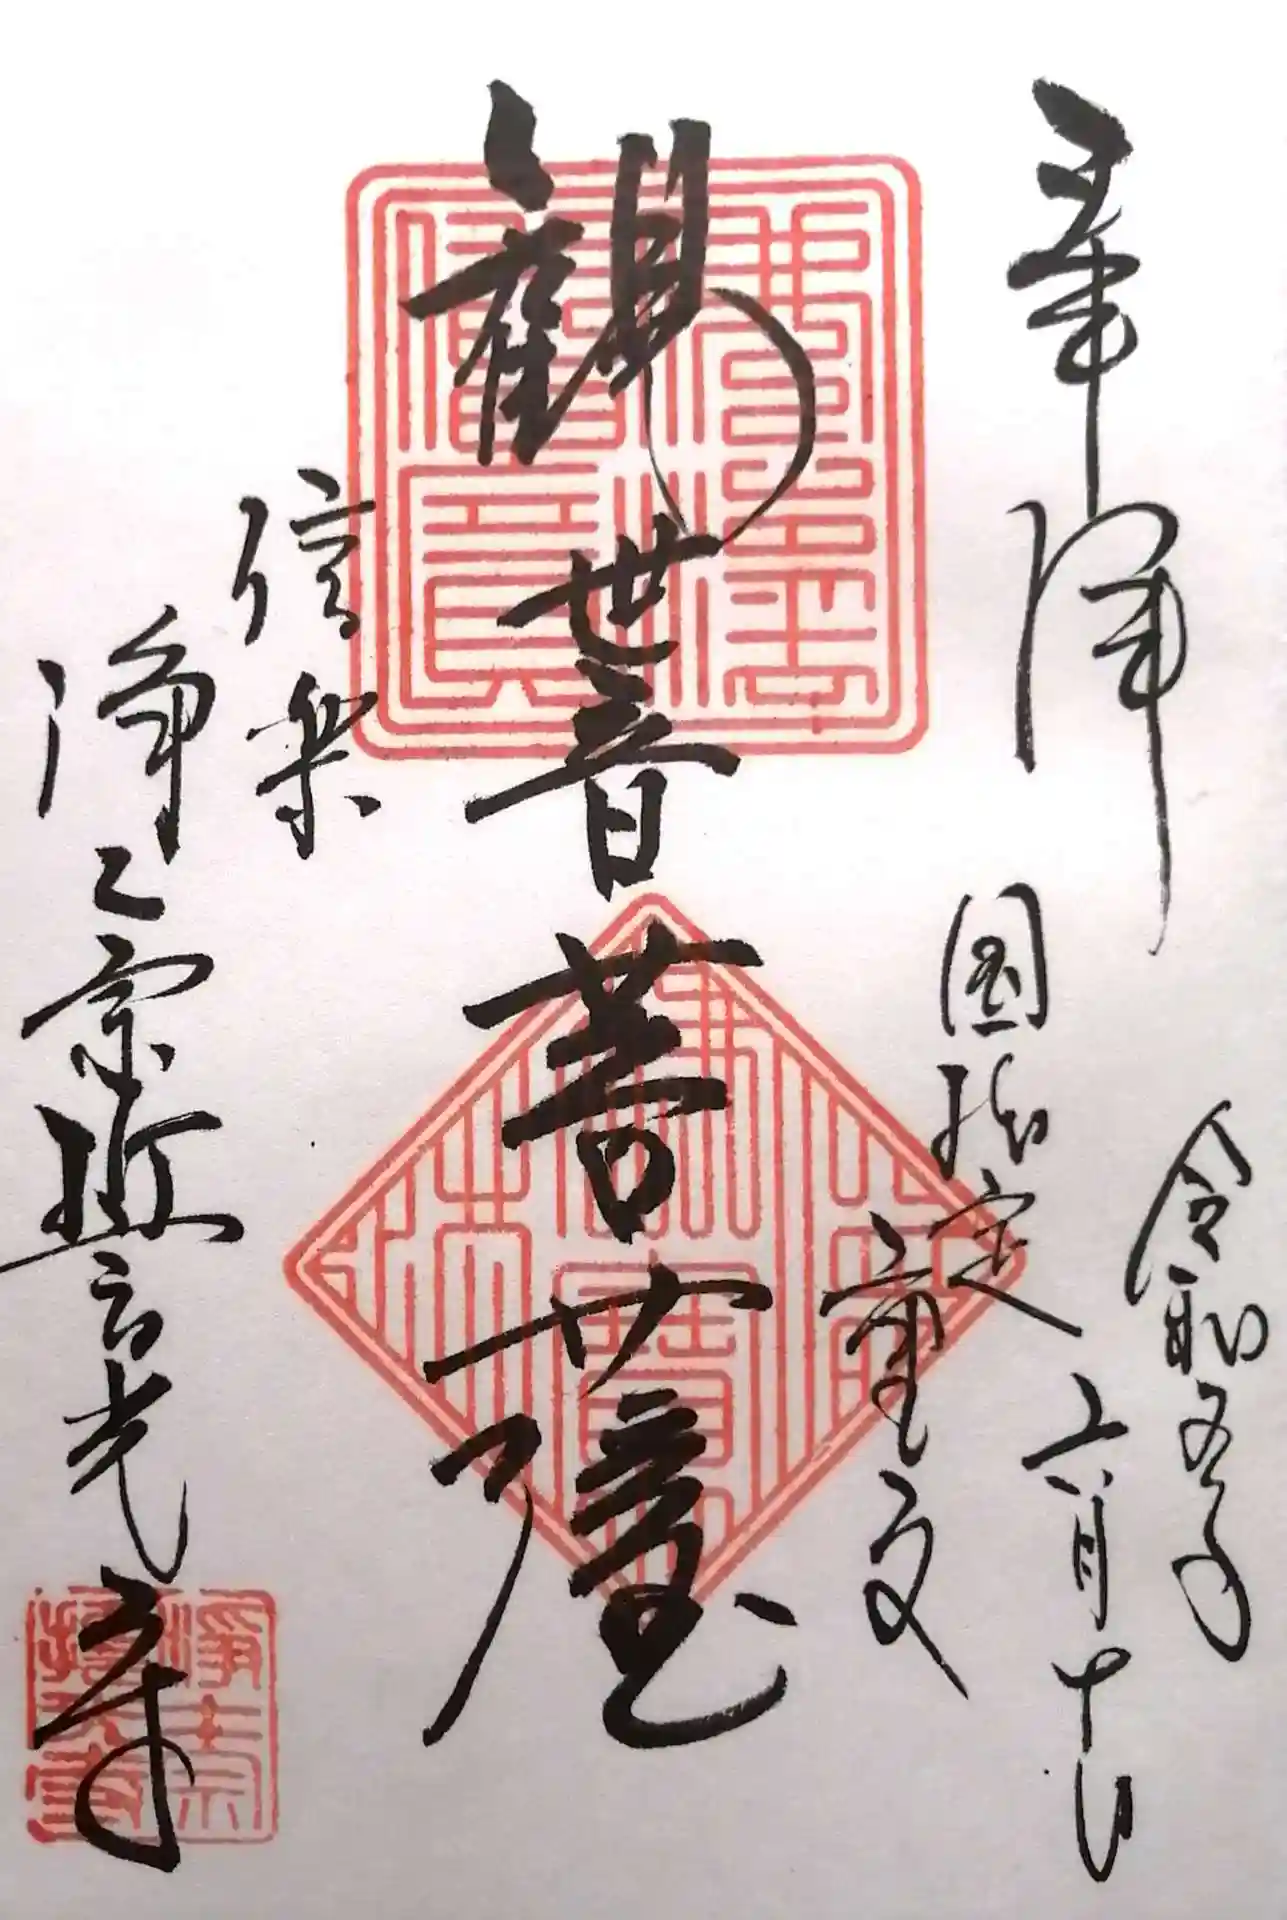 奉拝
令和五年
六月十日
国指定
重文
觀世音菩薩
信楽
浄土宗誓光寺